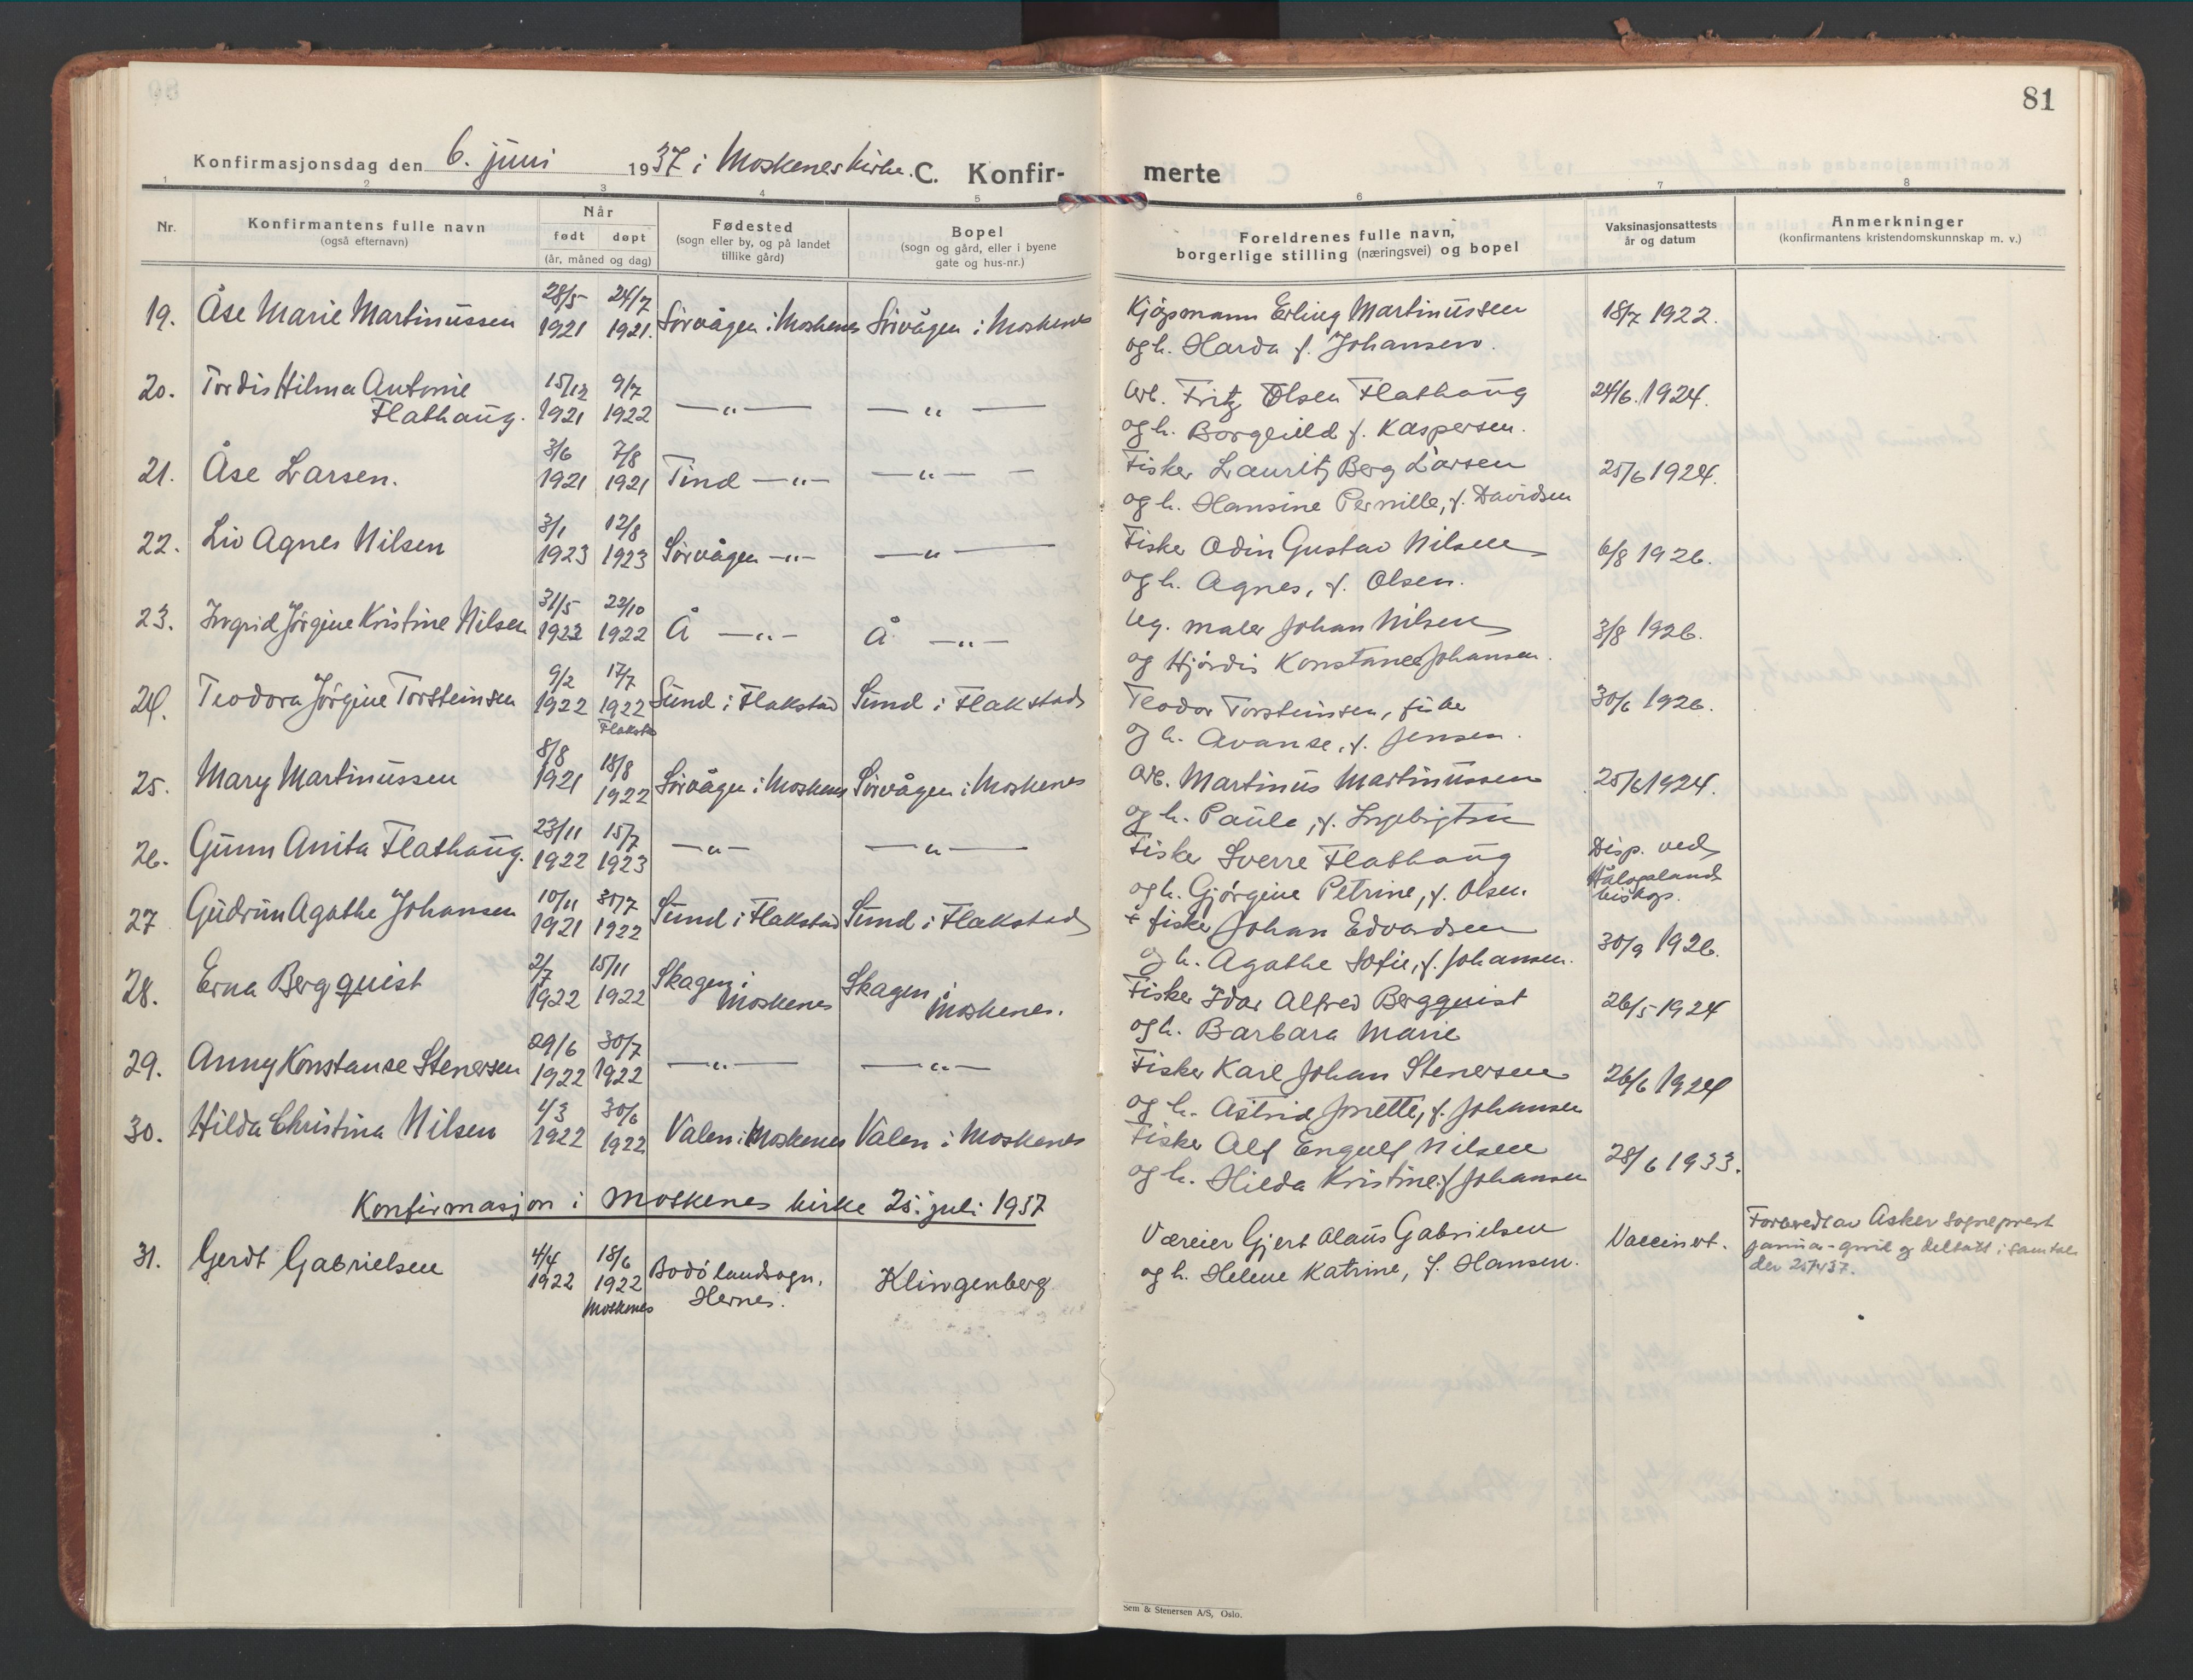 81
Konfirmasjonsdag den 6. juni 1937 i Moskenes kirke. C. Konfirmerte
1 2 3 4 5 6 7 8
Nr.
Konfirmantens fulle navn
(også efternavn)
Når
født døpt
(år, måned og dag)
Fødested
(sogn eller by, og på landet
tillike gård)
Bopel
(sogn og gård, eller i byene
gate og hus-nr.)
Foreldrenes fulle navn,
borgerlige stilling (næringsvei) og bopel
Vaksinasjonsattests
år og datum
Anmerkninger
(konfirmantens kristendomskunnskap m. v.)
19. Åse Marie Martinussen 28/5 1921 24/7 1921. Sørvågen i Moskenes Sørvågen i Moskenes Kjøpmann Erling Martinussen 18/7 1922.
og h. Harda f. Johansen.
20. Tordis Hilma Antonie 15/12 1921 9/7 1922 —„— —„— Arb. Fritz Olsen Flathaug 24/6. 1924.
Flathaug. og h. Borghild f. Kaspersen.
21. Åse Larsen. 3/6 1921 7/8 1921 Tind —„— —„— Fisker Lauritz Berg Larsen 25/6 1924.
og h. Hansine Pernille, f. Davidsen
22. Liv Agnes Nilsen 3/1 1923 12/8 1923 Sørvågen —„— —„— Fisker Odin Gustav Nilsen 6/8 1926.
og h. Agnes, f. Olsen.
23. Ingrid Jørgine Kristine Nilsen 31/5 1922 22/10 1922 Å —„— Å —„— Ug. maler Johan Nilsen 3/8 1926.
og Hjørdis Konstance Johansen.
24. Teodora Jørgine Torsteinsen 9/2 1922 17/7 1922 Flakstad Sund i Flakstad Sund i Flakstad Teodor Torsteinsen, fisker 30/6 1926.
og h. Avanse, f. Jensen.
25. Mary Martinussen 8/8 1921 18/8 1922 Sørvågen i Moskenes Sørvågen i Moskenes Arb. Martinus Martinussen 25/6 1924.
og h. Paula, f. Ingebrigtsen
26. Gunn Anita Flathaug. 23/11 1922 15/7 1923 —„— —„— Fisker Sverre Flathaug Disp. ved
og h. Gjørgine Petrine, f. Olsen. Hålogaland
biskop.
27 Gudrun Agathe Johansen 10/11 1921 30/7 1922 Sund i Flakstad Sund i Flakstad + fisker Johan Edvardsen 30/9 1926.
og h. Agathe Sofie, f. Johansen.
28. Erna Bergquist 2/7 1922 15/11 1922 Skagen i Moskenes Skagen i Moskenes. Fisker Idar Alfred Bergquist 26/5 1924
og h. Barbara Marie
29. Anny Konstanse Stenersen 29/6 1922 30/7 1922 —„— —„— Fisker Karl Johan Stenersen 26/6 1924
og h. Astrid Jonette, f. Johansen
30. Hilda Christina Nilsen 4/3 1922 30/6 1922 Valen i Moskenes Valen i Moskenes Fisker Alf Engulf Nilsen 28/6 1933.
og h. Hilda Kristine f. Johansen
Konfirmasjon i Moskenes kirke 25. juli 1937
31. Gerdt Gabrielsen 4/4 1922 18/6 1922 Moskenes Bodø landsogn, Hernes. Klingenberg Væreier Gjert Olaus Gabrielsen Vaccinert. Forberedt av Asker sogneprest
og h. Helene Katrine, f. Hansen. januar-april og deltatt i samtale
den 25/7 37.
Sem & Stenersen A/S, Oslo.